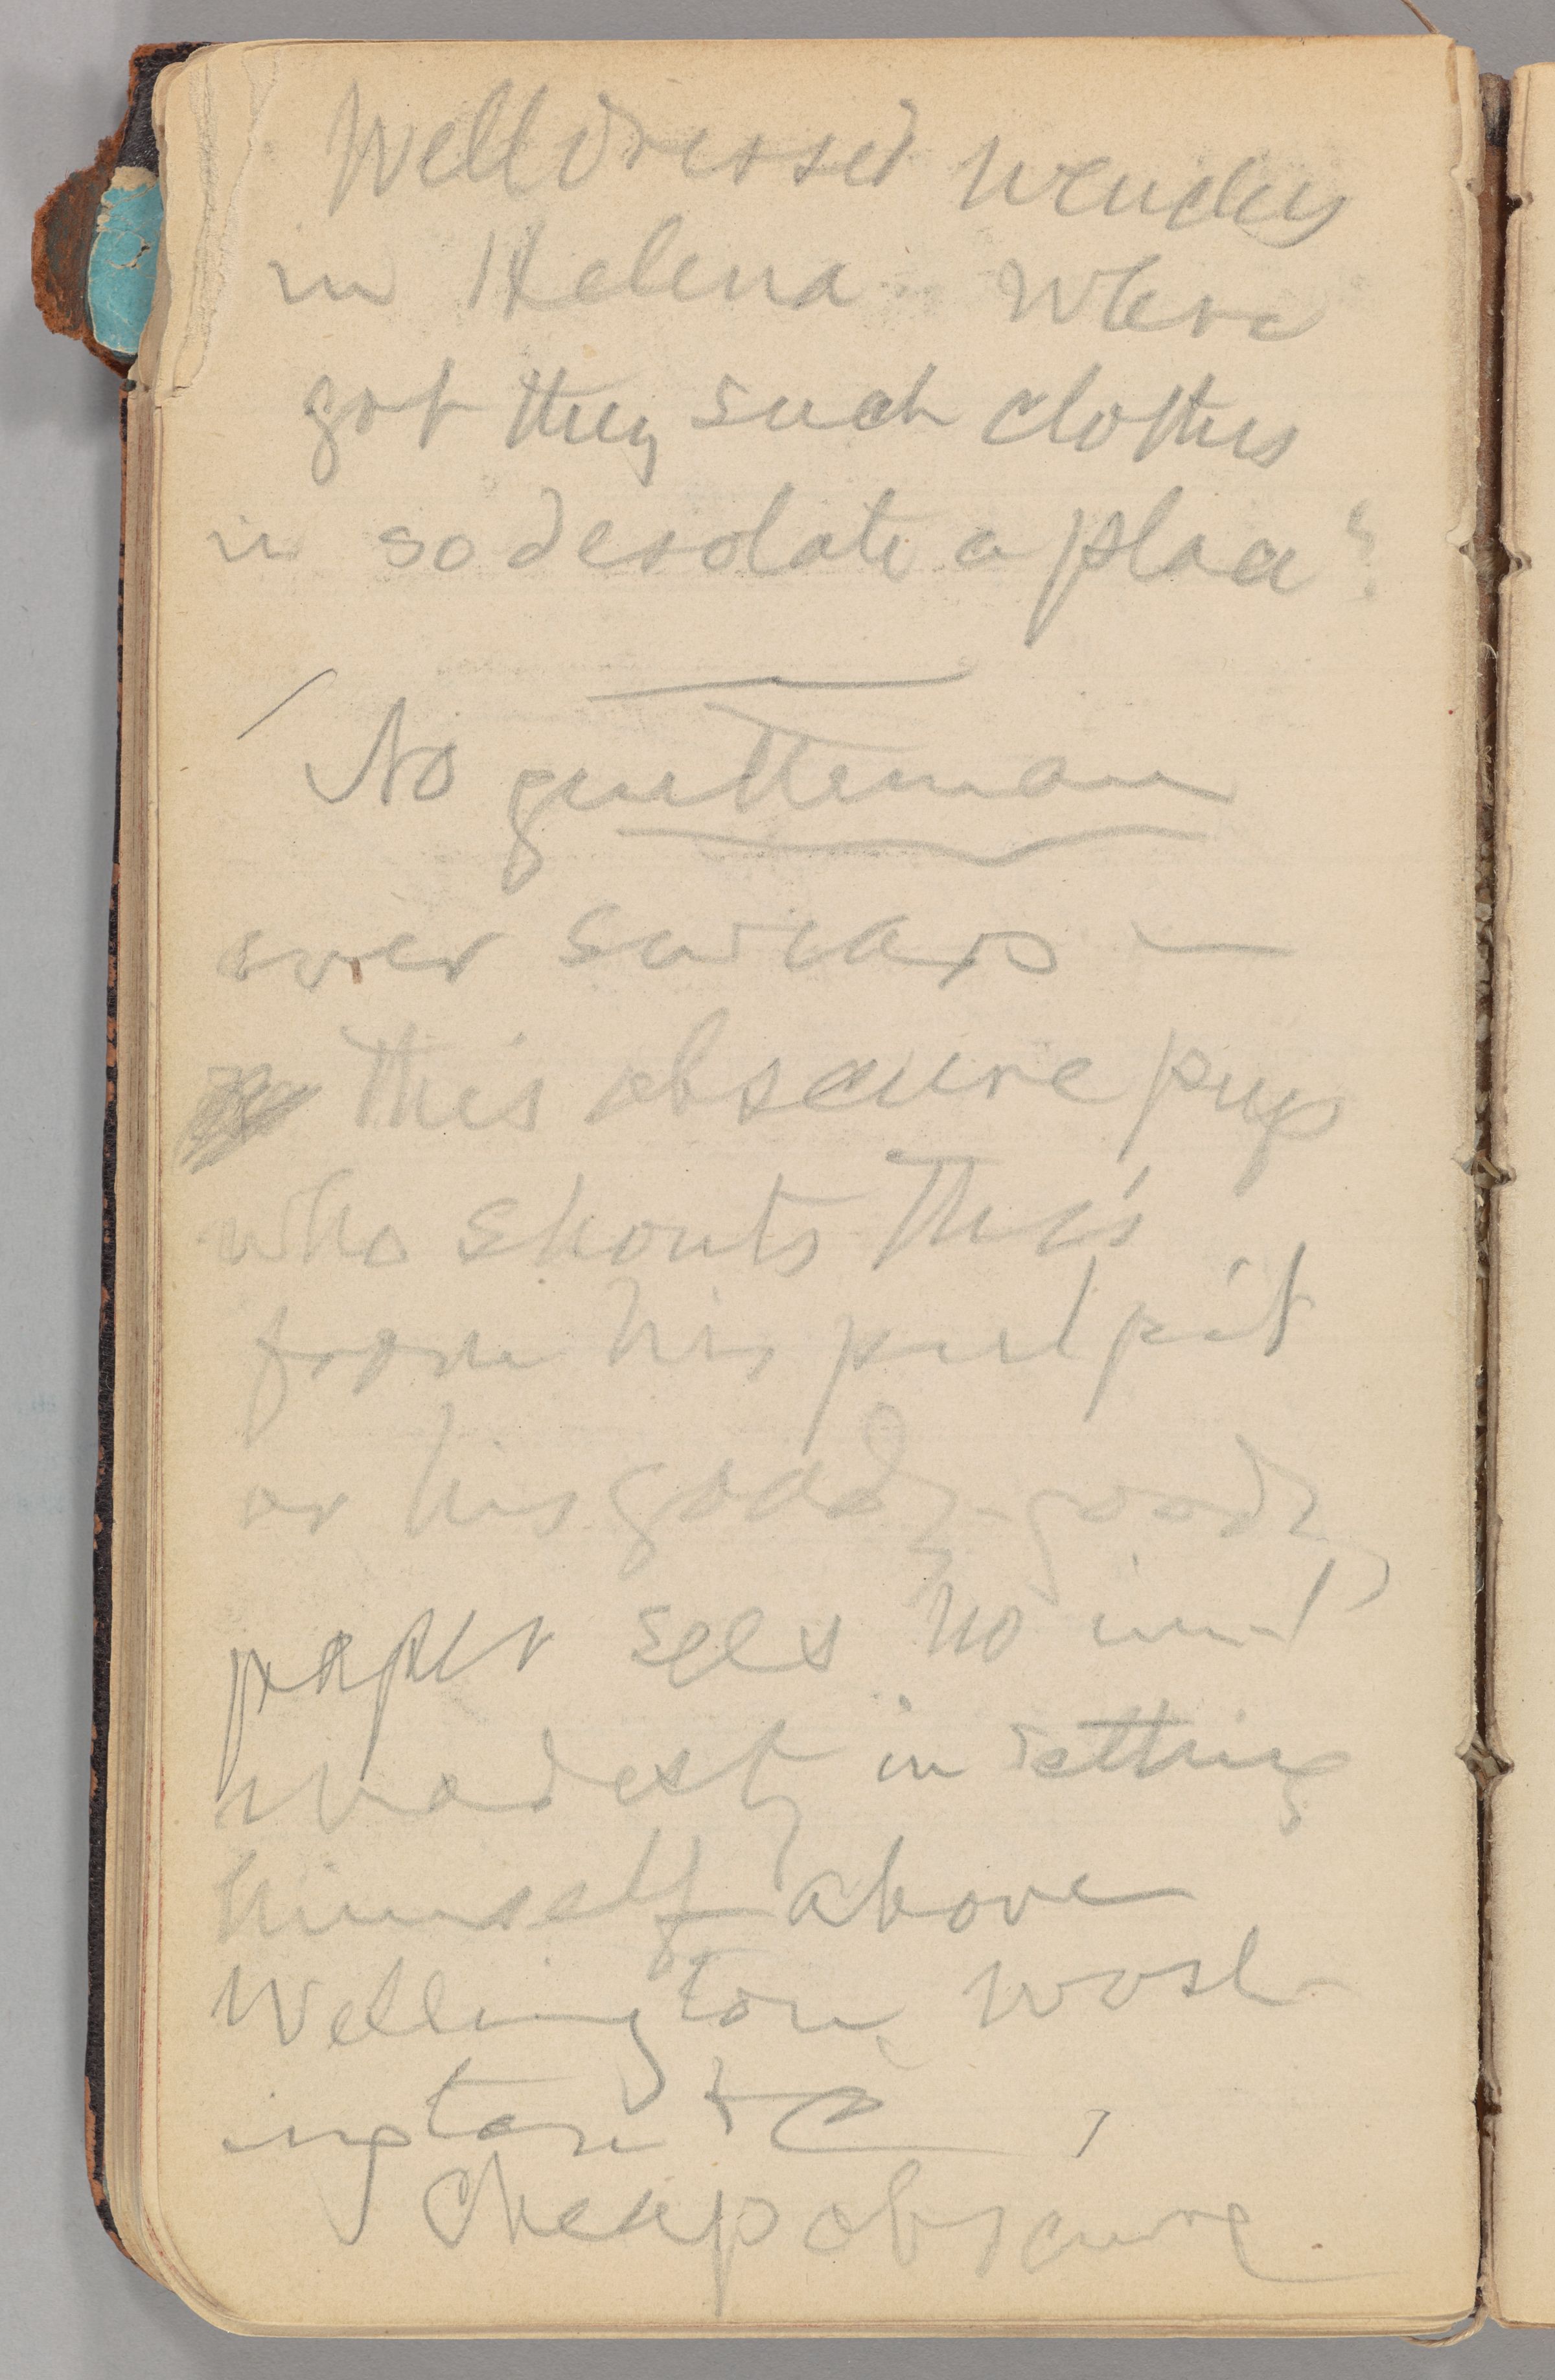 Well dressed wenches
in Helena - Where
got they such clothes
in so desolate a place?
No gentleman
ever swears —
This obscure pup
who shouts this
from his pulpit
or his goody-goody
paper sees no im-
modesty in setting
himself above
Wellington, Wash-
ington &c,
Cheap obscure